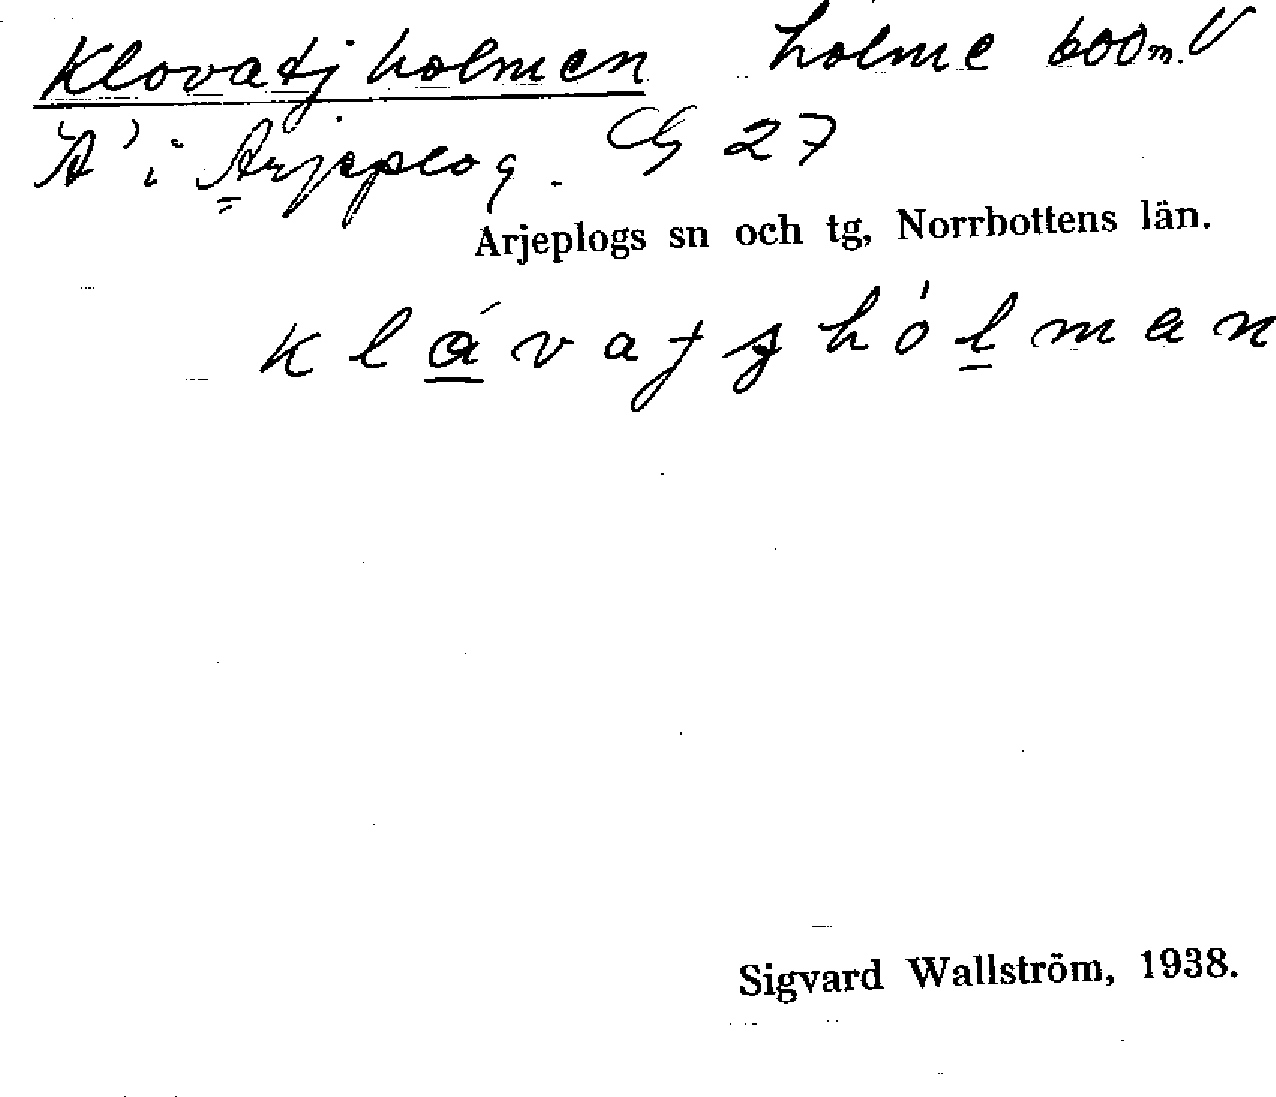 Klovatjholmen holme 600 m. V
"A" i Arjeplog. G 27
Arjeplogs sn och tg, Norrbottens län.
Sigvard Wallström, 1938.